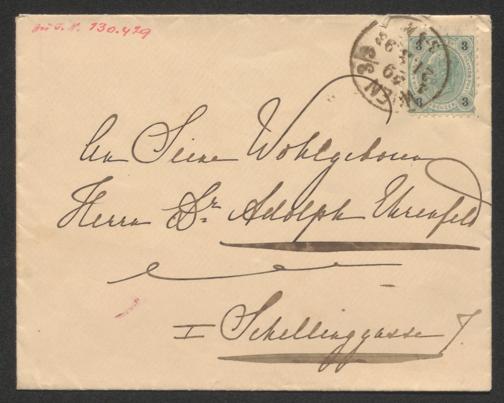 zu I. N. 130.419
WIEN 3/3
3
3
3
3
An Seine Wohlgeboren
Herrn Dr. Adolph Ehrenfeld
I Schellinggasse 7